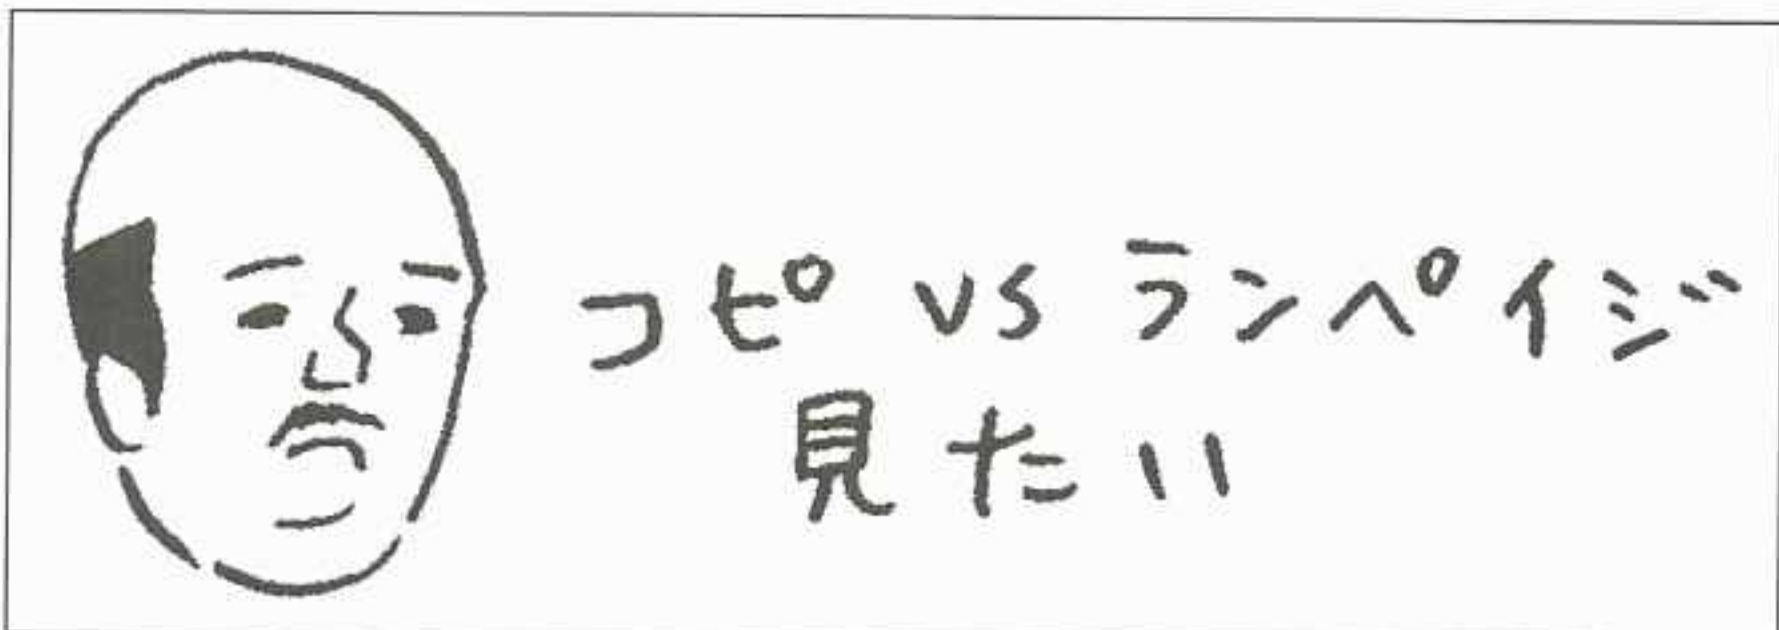 コピ vs ランペイジ
見たい